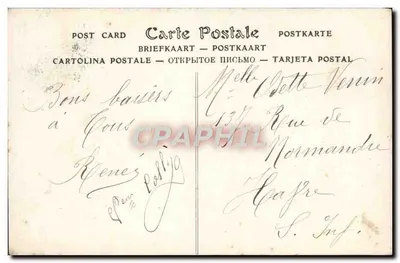 POST CARD Carte Postale POSTKARTE
BRIEFKAART — POSTKAART
CARTOLINA POSTALE — ОТКРЫТОЕ ПИСЬМО — TARJETA POSTAL
Bons baisers
à Tous
Renée
Melle Odette
137 Rue de
Normandie
Havre
S. Inf.
CPARAMA